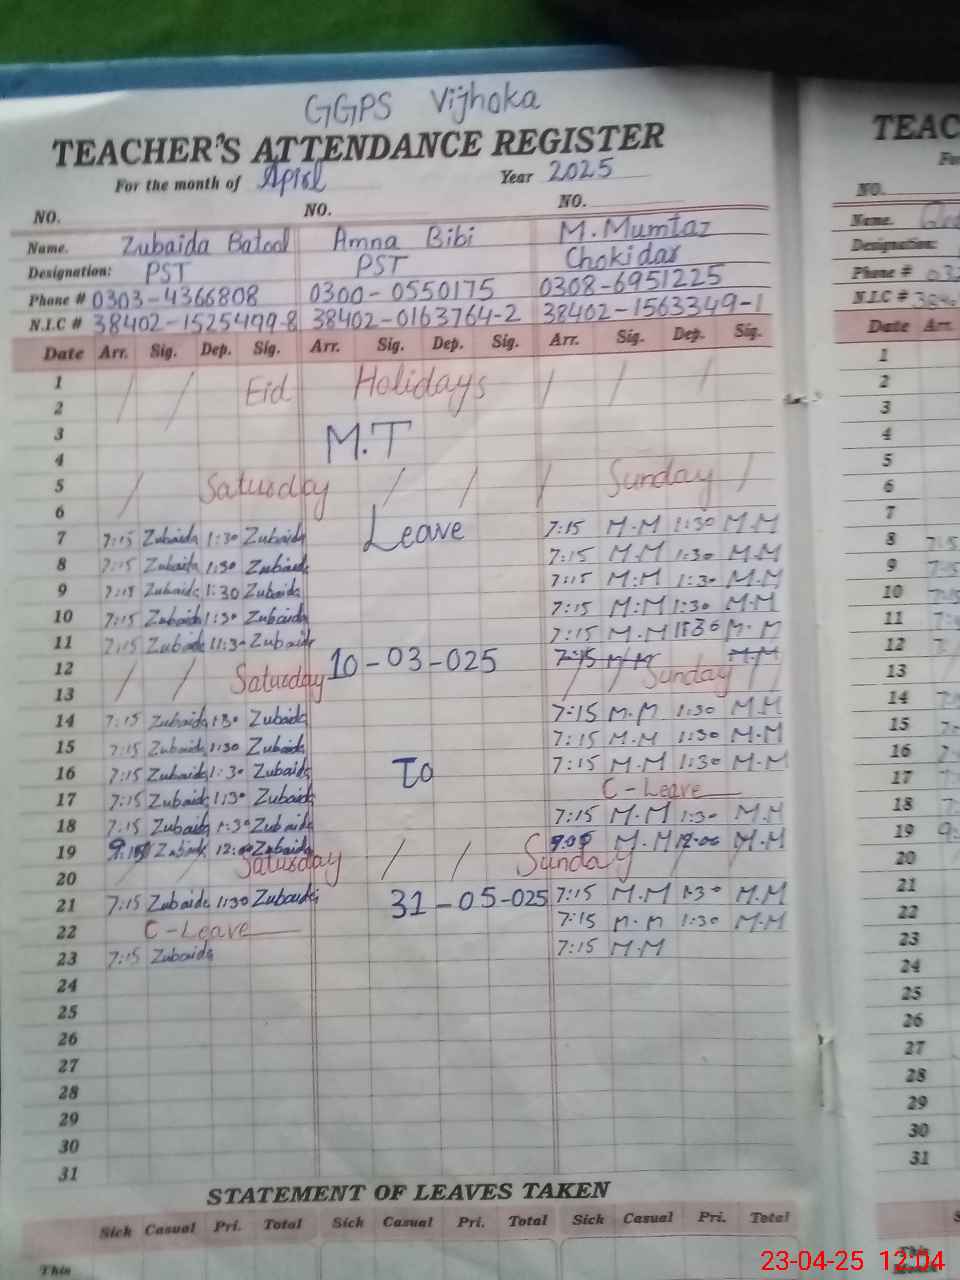 GGPS Vijhoka
TEACHER'S ATTENDANCE REGISTER
For the month of Apirl Year 2025
NO. NO. NO.
Name. Zubaida Batool Amna Bibi M. Mumtaz
Designation: PST PST Chokidar
Phone # 0303-4366808 0300-0550175 0308-6951225
N.I.C # 38402-1525499-8 38402-0163764-2 38402-1563349-1
Date Arr. Sig. Dep. Sig. Arr. Sig. Dep. Sig. Arr. Sig. Dep. Sig.
1 / / Eid Holidays / / /
2
3 M.T
4
5 / Saturday / / / Sunday /
6
7 7:15 Zubaida 1:30 Zubaida Leave 7:15 M.M 1:30 M.M
8 7:15 Zubaida 1:30 Zubaida 7:15 M.M 1:30 M.M
9 7:15 Zubaida 1:30 Zubaida 7:15 M:M 1:30 M.M
10 7:15 Zubaida 1:30 Zubaida 7:15 M:M 1:30 M.M
11 7:15 Zubaida 11:30 Zubaida 7:15 M.M 1:30 M.M
12 / / Saturday 10-03-025 7:15 M.M / / Sunday M.M
13
14 7:15 Zubaida 1:30 Zubaida 7:15 M.M 1:30 M.M
15 7:15 Zubaida 1:30 Zubaida 7:15 M.M 1:30 M.M
16 7:15 Zubaida 1:30 Zubaida To 7:15 M.M 1:30 M.M
17 7:15 Zubaida 1:30 Zubaida C-Leave
18 7:15 Zubaida 1:30 Zubaida 7:15 M.M 1:30 M.M
19 Zubaida 12:00 Zubaida M.M 12:00 M.M
20 / / Saturday / / Sunday / /
21 7:15 Zubaida 1:30 Zubaida 31-05-025 7:15 M.M 1:30 M.M
22 C-Leave 7:15 M.M 1:30 M.M
23 7:15 Zubaida 7:15 M.M
24
25
26
27
28
29
30
31
STATEMENT OF LEAVES TAKEN
Sick Casual Pri. Total Sick Casual Pri. Total Sick Casual Pri. Total
This
TEAC
NO.
Name.
Designation:
Phone #
N.I.C #
Date Arr.
1
2
3
4
5
6
7
8
9
10
11
12
13
14
15
16
17
18
19
20
21
22
23
24
25
26
27
28
29
30
31
This
23-04-25 12:04